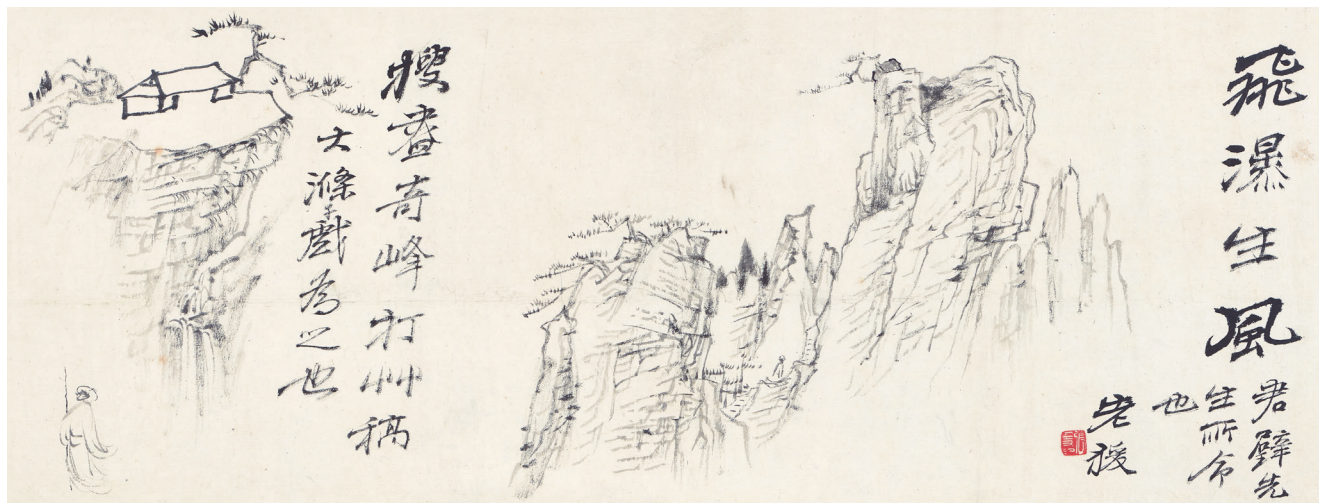 飛瀑生風
君璧先
生所命
也
老猨
搜盡奇峰打艸稿
大滌子戲為之也